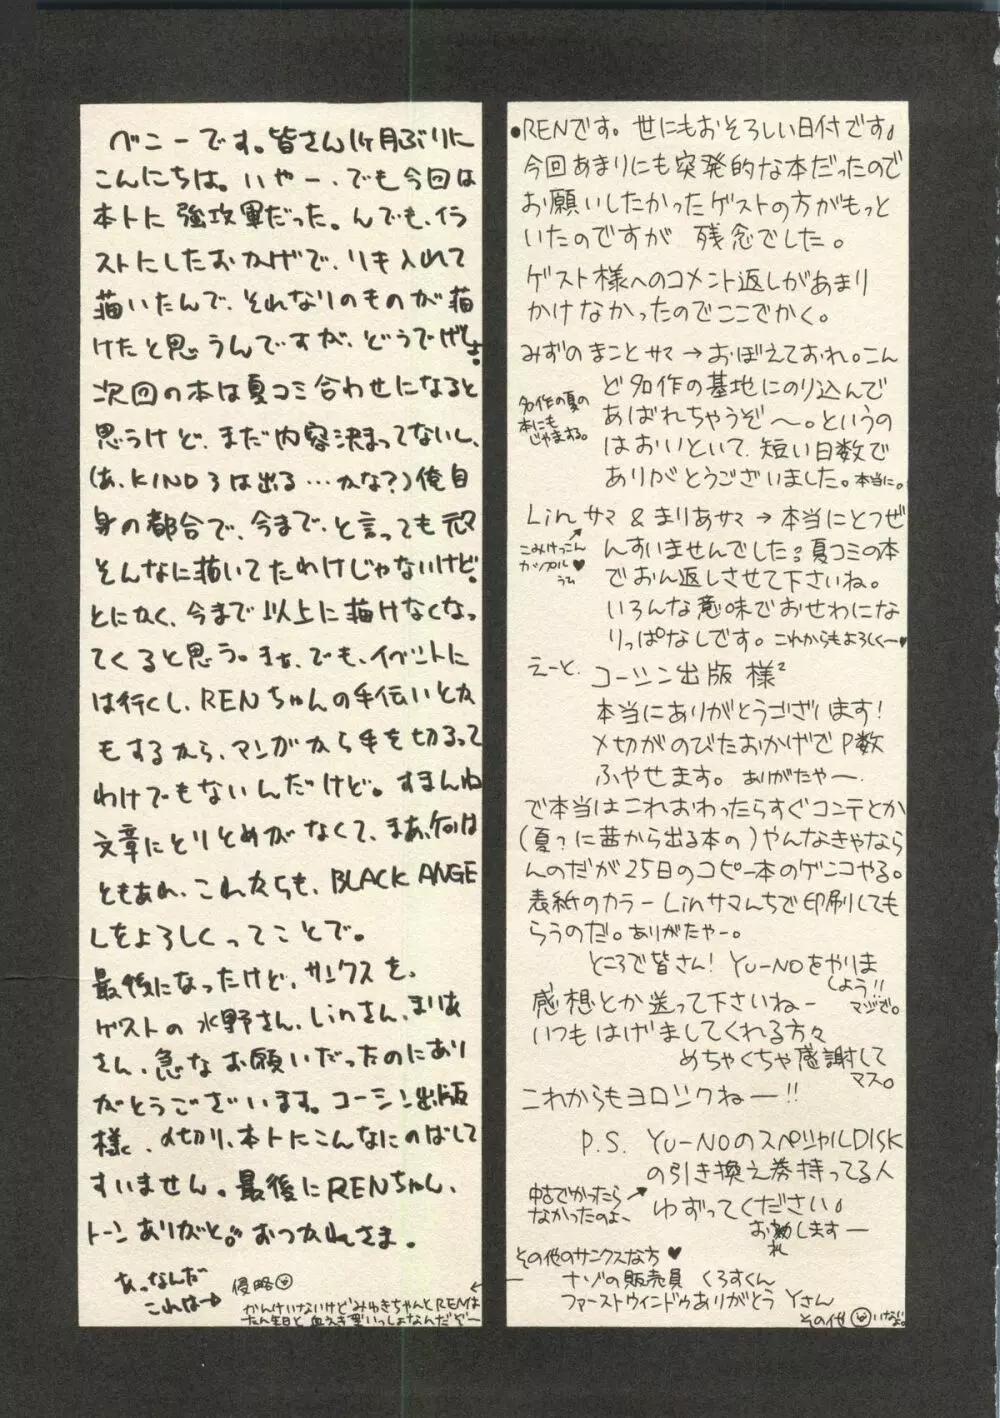 ベニーです。皆さん1ヶ月ぶりに
こんにちは。いやー、でも今回は
本トに強攻軍だった。んでも、イラ
ストにしたおかげで、りき入れて
描いたんで、それなりのものが描
けたと思うんですが、どうでげしょ!
次回の本は夏コミ合わせになると
思うけど、まだ内容決まってないし、
(あ、KINO3は出る…かな?)俺自
身の都合で、今まで、と言っても元々
そんなに描いてたわけじゃないけど。
とにかく、今まで以上に描けなくなっ
てくると思う。まぁ、でも、イベントに
は行くし、RENちゃんの手伝いとか
もするから、マンガから手を切るって
わけでもないんだけど。すまんね
文章にとりとめがなくて、まあ、何は
ともあれ、これからも、BLACK ANGE
Lをよろしくってことで。
最後になったけど、サンクスを、
ゲストの水野さん、Linさん、まりあ
さん、急なお願いだったのにあり
がとうございます。コーシン出版
様、〆切り、本トにこんなにのばして
すいません。最後にRENちゃん、
トーンありがと。おつかれさま。
あっなんだ
これは→
侵略
かんけいないけどみゆきちゃんとRENは
たん生日と血えき型いっしょなんだぞー
●RENです。世にもおそろしい日付です。
今回あまりにも突発的な本だったので
お願いしたかったゲストの方がもっと
いたのですが 残念でした。
ゲスト様へのコメント返しがあまり
かけなかったのでここでかく。
みずのまことサマ→おぼえておれ。こん
ど名作の基地にのり込んで
あばれちゃうぞ〜。というの
はおいといて、短い日数で
ありがとうございました。本当に。
名作の夏の
本にも
じゃまする。
Linサマ&まりあサマ→本当にとつぜ
んすいませんでした。夏コミの本
でおん返しさせて下さいね。
いろんな意味でおせわにな
りっぱなしです。これからもよろしく〜♥
こみけっこん
カップル♥
うふ
えーと、コーシン出版 様²
本当にありがとうございます!
〆切がのびたおかげでP数
ふやせます。ありがたやー.
で本当はこれおわったらすぐコンテとか
(夏?に茜から出る本の)やんなきゃなら
んのだが25日のコピー本のゲンコやる。
表紙のカラーLinサマんちで印刷しても
らうのだ。ありがたやー。
ところで皆さん!YU-NOをやりま
しょう!!
マジで。
感想とか送って下さいねー
いつもはげましてくれる方々
めちゃくちゃ感謝して
マス。
これからもヨロシクねー!!
P.S. YU-NOのスペシャルDISK
の引き換え券持ってる人
ゆずってください。
お願いします―
中古でかったら
なかったのよ、
その他のサンクスな方♥
ナゾの販売員 くろすくん
ファーストウインドゥありがとう Yさん
その他